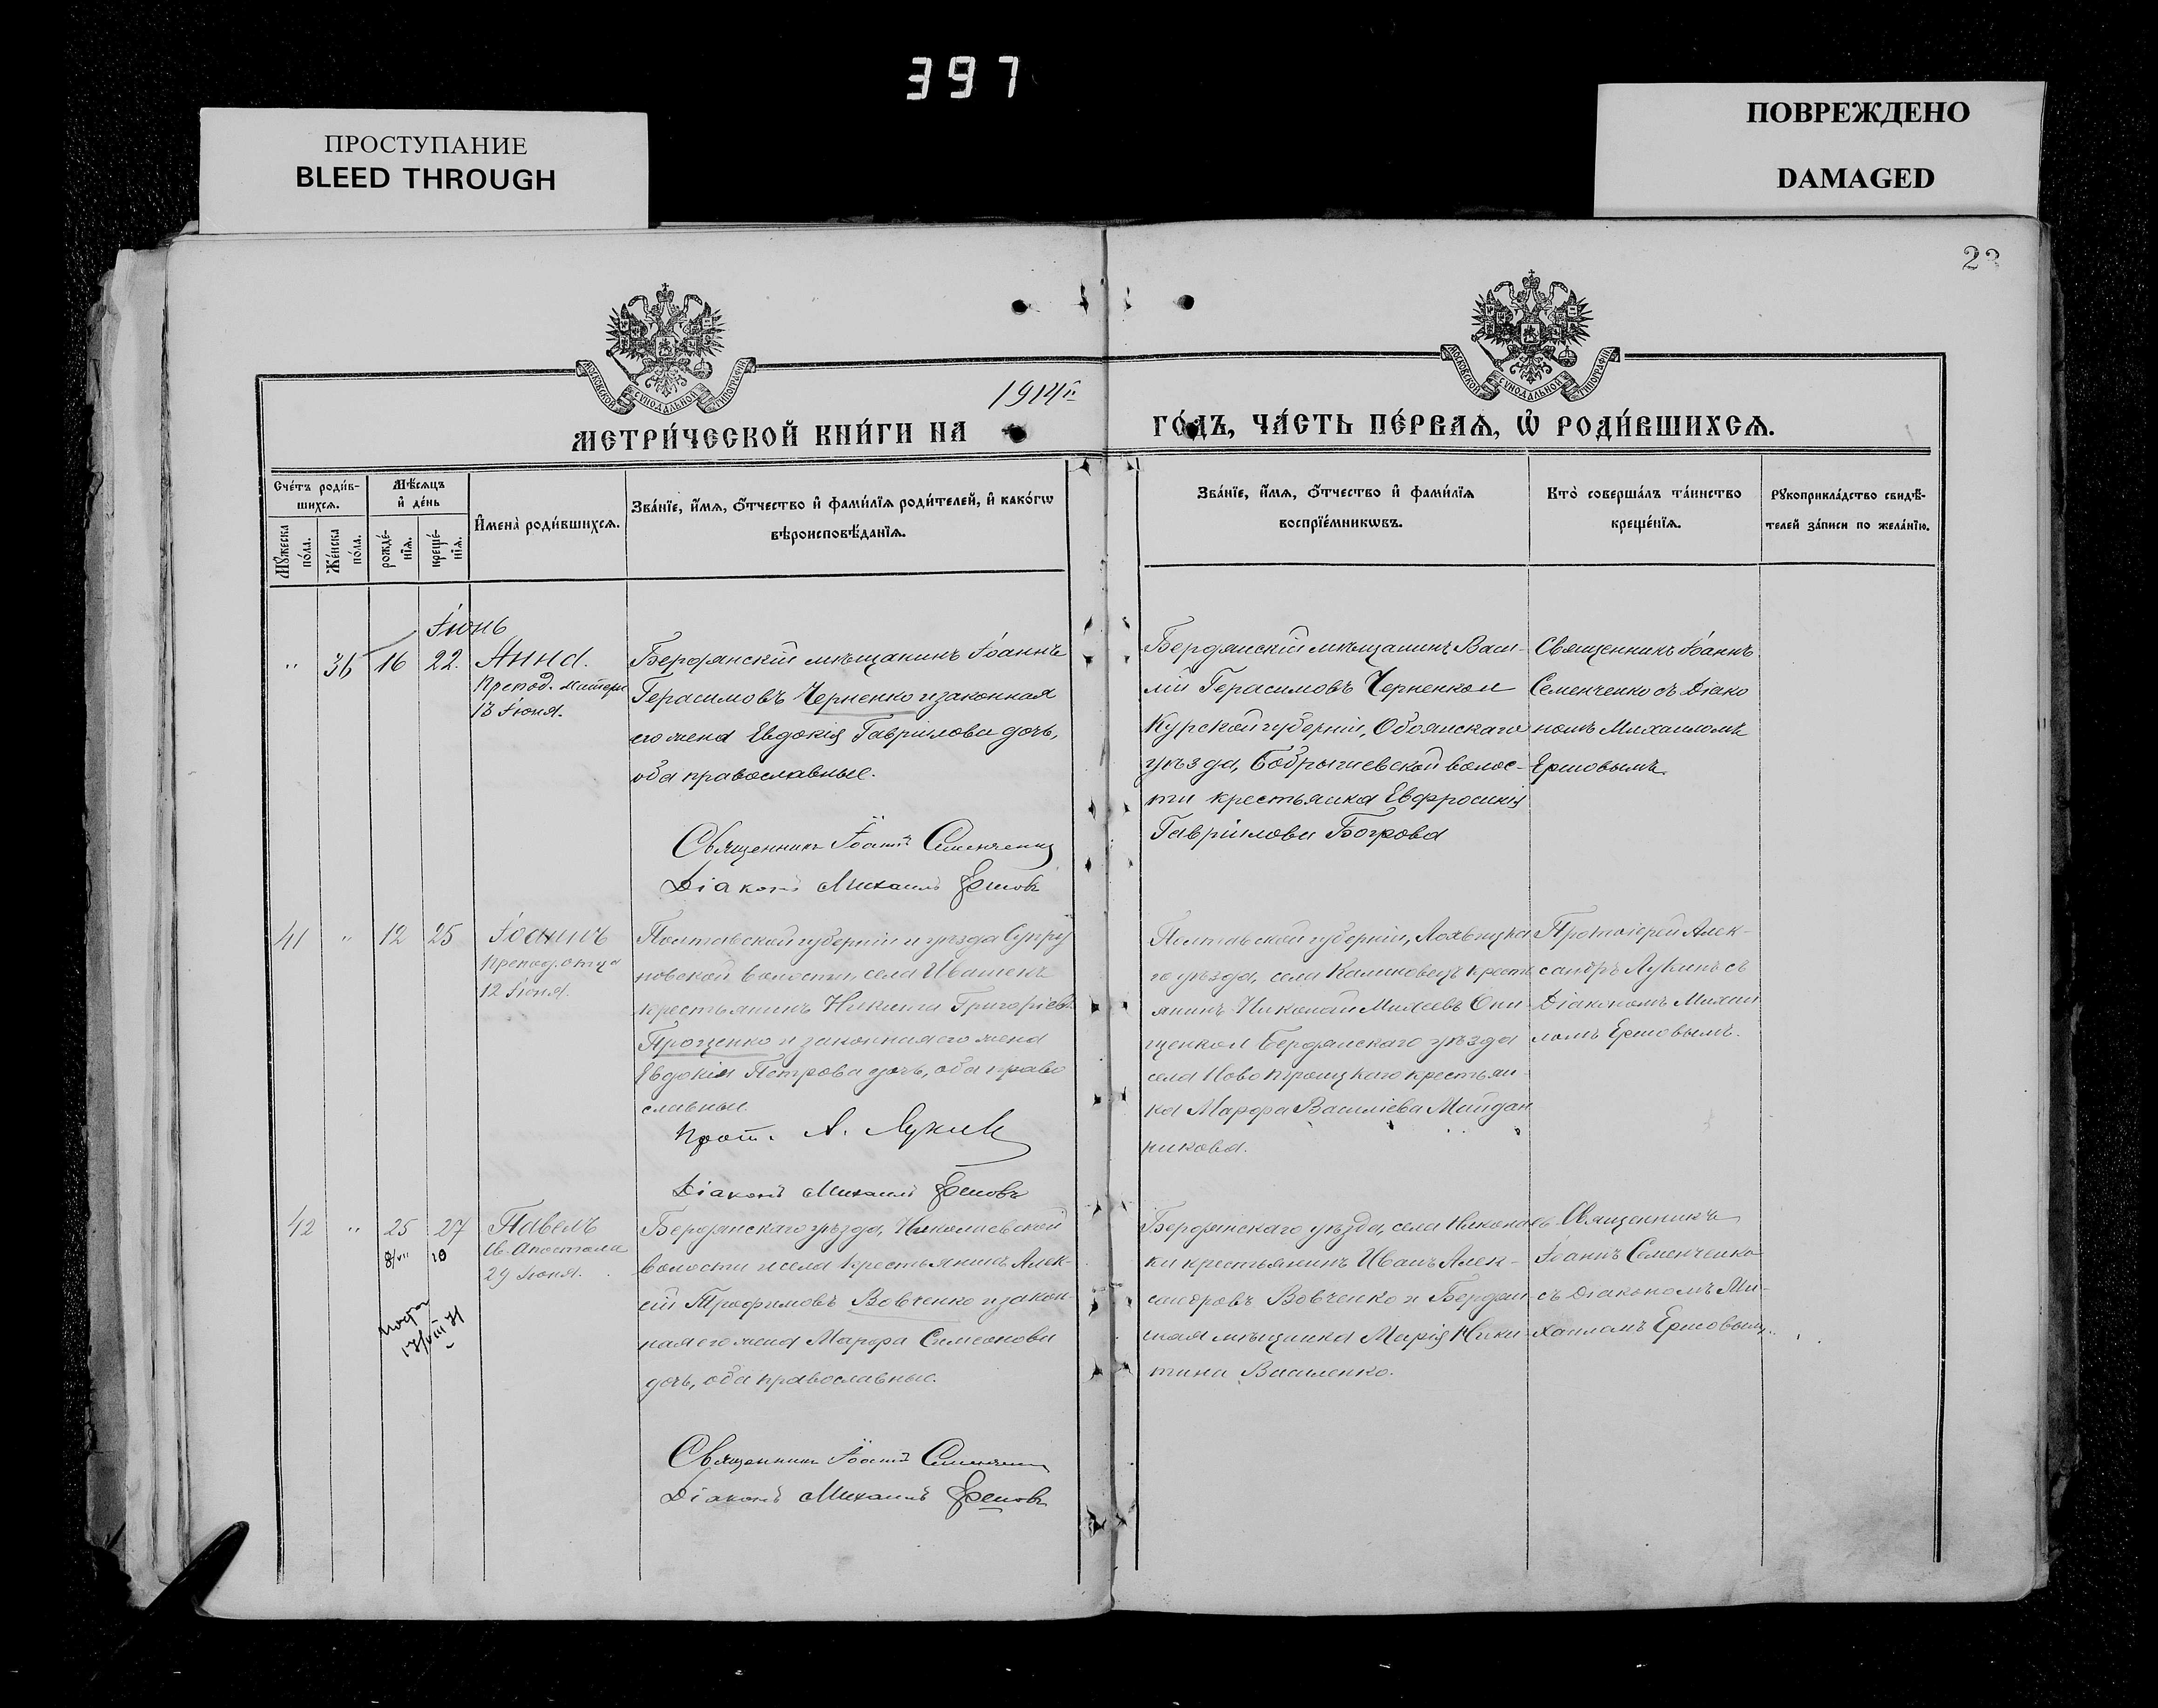 397
ПРОСТУПАНИЕ
BLEED THROUGH
ПОВРЕЖДЕНО
DAMAGED
23
МОСКОВСКОЙ СѴНОДАЛЬНОЙ ТИПОГРАФІИ
МОСКОВСКОЙ СѴНОДАЛЬНОЙ ТИПОГРАФІИ
МЕТРИ́ЧЕСКОЙ КНИ́ГИ НА 1914й ГО́ДЪ, ЧА́СТЬ ПЕ́РВАѦ, Ѡ҆ РОДИ́ВШИХСѦ.
Сче́тъ роди́в-
шихсѧ.
Мꙋ́жеска
по́ла.
Же́нска
по́ла.
Мѣ́сѧцъ
и҆ де́нь
рожде́-
нїѧ.
креще́-
нїѧ.
И҆мена̀ роди́вшихсѧ.
Зва́нїе, и҆́мѧ, ѻ҆́тчество и҆ фами́лїѧ роди́телей, и҆ како́гѡ
вѣроисповѣ́данїѧ.
Зва́нїе, и҆́мѧ, ѻ҆́тчество и҆ фами́лїѧ
воспрїе́мникѡвъ.
Кто̀ соверша́лъ та́инство
креще́нїѧ.
Рꙋкоприкла́дство свидѣ́-
телей за́писи по жела́нїю.
Іюнь
" 36 16 22. Анна.
Препод. матери
13 Іюня.
Бердянскій мѣщанинъ Іоаннъ
Герасимовъ Черненко и законная
его жена Евдокія Гавріилова дочь,
оба православные.
Священникъ Іоаннъ Семенченко
Діаконъ Михаилъ Ершовъ
Бердянскій мѣщанинъ Васи-
лій Герасимовъ Черненко и
Курской губерніи, Обоянскаго
уѣзда, Бобрышевской волос-
ти крестьянка Евфросинія
Гавріилова Богрова
Священникъ Іоаннъ
Семенченко съ Діако
номъ Михаиломъ
Ершовымъ.
41 " 12 25 Іоаннъ
Препод. отца
12 Іюня.
Полтавской губерніи и уѣзда Супру
новской волости, села Ивашекъ
крестьянинъ Никита Григоріевъ
Проценко и законная его жена
Евдокія Петрова дочь, оба право
славные.
Прот. А. Лукинъ
Діаконъ Михаилъ Ершовъ
Полтавской губерніи, Лохвицка
го уѣзда, села Калиновецъ кресть
янинъ Николай Михеевъ Они-
щенко и Бердянскаго уѣзда
села Ново Троицкаго крестьян-
ка Марфа Василіева Майдан
никова.
Протоіерей Алек-
сандръ Лукинъ съ
Діакономъ Михаи
ломъ Ершовымъ.
42 " 25 27 Павелъ
8/VII 10
Св. Апостола
29 Іюня.
17/VIII 71
Бердянскаго уѣзда, Николаевской
волости и села крестьянинъ Алек-
сій Трофимовъ Вовченко и закон-
ная его жена Марфа Симеонова
дочь, оба православные.
Священникъ Іоаннъ Семенченко
Діаконъ Михаилъ Ершовъ
Бердянскаго уѣзда, села Николаев-
ки крестьянинъ Иванъ Алек-
сандровъ Вовченко и Бердян-
ская мѣщанка Марія Ники-
тина Василенко.
Священникъ
Іоаннъ Семенченко
съ Діакономъ Ми-
хаиломъ Ершовымъ.